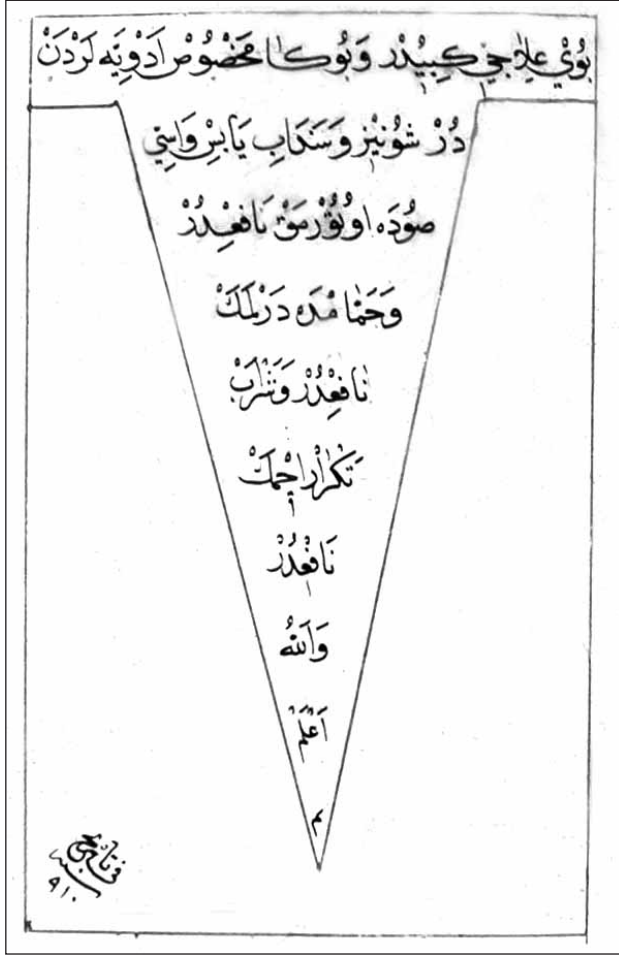 بُويْ عِلَاجِي كِبِيدُرْ وَبُوكَا مَخْصُوصْ اَدْوِيَه لَرْدَنْ
دُرْ شُونِيزْ وَسَدَابِ يَابِسْ وَاسِّي
صُودَه اوُتُورْمَقْ نَافِعْدُرْ
وَحَمَّامْدَه دَرْلَمَكْ
نَافِعْدُرْ وَشَرَابْ
تَكْرَارْ اِجْمَكْ
نَافِعْدُرْ
وَاللهُ
اَعْلَمْ
م
في تاريخ
سنه
٩١٠